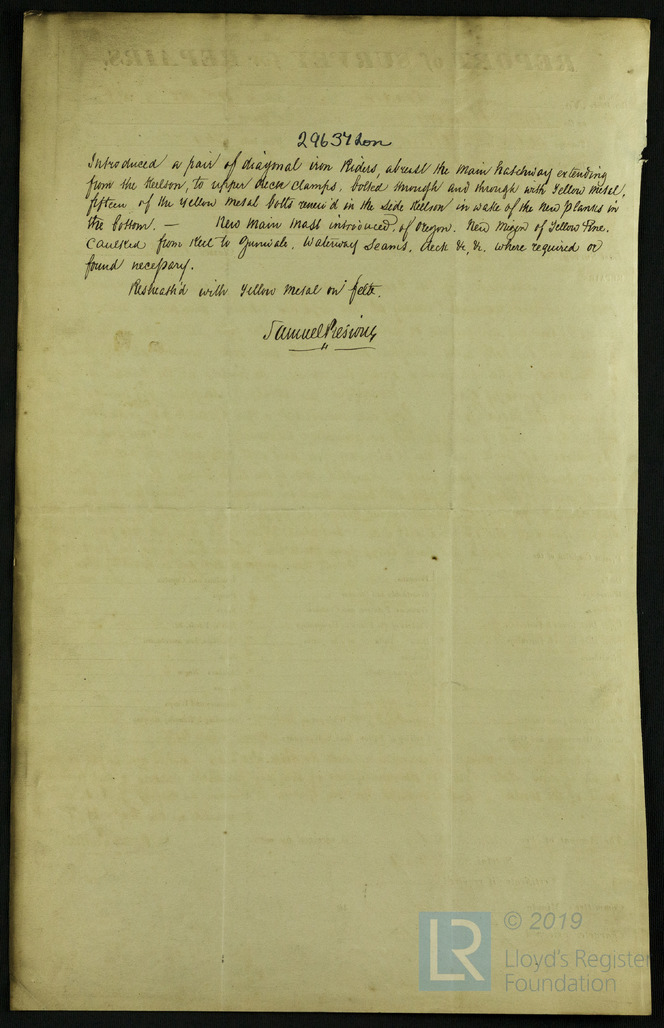 REPORT of SURVEY for REPAIRS.
29637 Lon
Introduced a pair of diagonal iron Riders, abreast the Main hatchway extending
from the Keelson, to upper deck clamps, bolted through and through with Yellow Metal,
fifteen of the Yellow Metal bolts renew'd in the side Keelson in wake of the new planks in
the bottom. — New Main Mast introduced, of Oregon. New Mizen of Yellow Pine.
Caulked from Keel to Gunwale, Waterway Seams, deck &c, &c. where required or
found necessary.
Resheath'd with Yellow Metal on felt.
Samuel
© 2019
LR
Lloyd's Register
Foundation